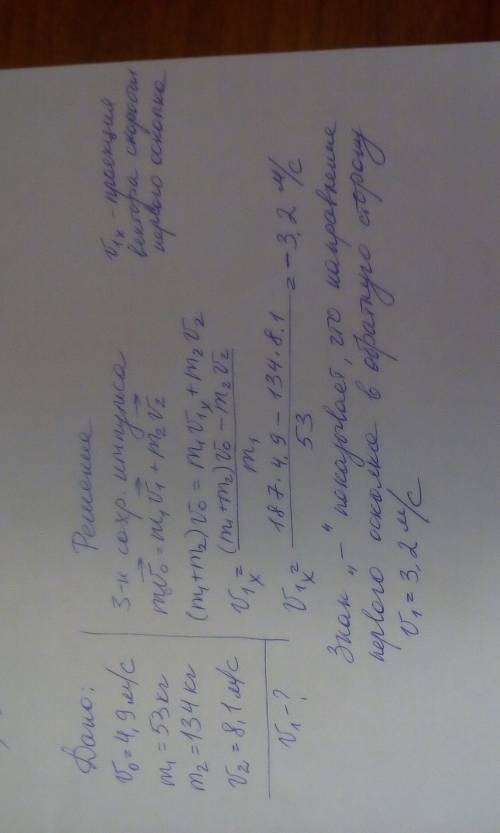 Дано:
v₀ = 4,9 м/с
m₁ = 53 кг
m₂ = 134 кг
v₂ = 8,1 м/с
v₁ - ?
Решение
З-н сохр. импульса
mv⃗₀ = m₁v⃗₁ + m₂v⃗₂
(m₁+m₂)v₀ = m₁v₁ₓ + m₂v₂
v₁ₓ = (m₁+m₂)v₀ - m₂v₂ / m₁
v₁ₓ = 187·4,9 - 134·8,1 / 53 = -3,2 м/с
v₁ₓ - проекция
вектора скорости
первого осколка
Знак „-" показывает, что направление
первого осколка в обратную сторону
v₁ = 3,2 м/с